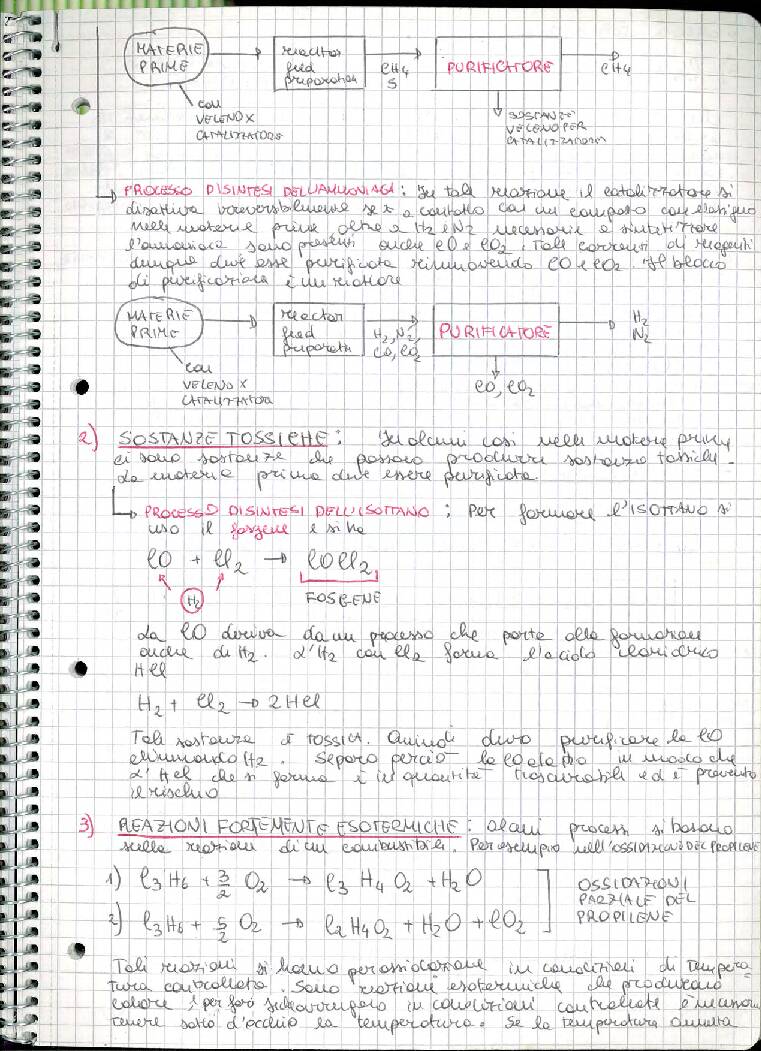 MATERIE PRIME
reactor feed preparation
CH4 S
PURIFICATORE
CH4
con VELENO X CATALIZZATORE
SOSTANZE VELENO PER CATALIZZATORI
PROCESSO DI SINTESI DELL'AMMONIACA: In tale reazione il catalizzatore si
disattiva irreversibilmente se è a contatto con un composto con ossigeno
nelle materie prime oltre a H2 e N2 necessarie a sintetizzare
l'ammoniaca sono presenti anche CO e CO2. Tale corrente di reagenti
dunque deve esse purificata rimuovendo CO e CO2. Il blocco
di purificazione è un reattore
MATERIE PRIME
reactor feed preparati
H2, N2, CO, CO2
PURIFICATORE
H2 N2
con VELENO X CATALIZZATORE
CO, CO2
2) SOSTANZE TOSSICHE: In alcuni casi nelle materie prime
ci sono sostanze che possono produrre sostanze tossiche.
La materia prima deve essere purificata.
PROCESSO DI SINTESI DELL'ISOTTANO: Per formare l'ISOTTANO si
usa il fosgene e si ha
CO + Cl2 → COCl2
H2
FOSGENE
La CO deriva da un processo che porta alla formazione
anche di H2. L'H2 con Cl2 forma l'acido cloridrico
HCl
H2 + Cl2 → 2HCl
Tale sostanza è TOSSICA. Quindi devo purificare la CO
eliminando H2. Separo perciò la CO in modo che
L'HCl che si forma è in quantità trascurabili ed è prevenuto
il rischio
3) REAZIONI FORTEMENTE ESOTERMICHE: Alcuni processi si basano
sulla reazione di un combustibile. Per esempio nell'OSSIDAZIONE DEL PROPILENE
1) C3H6 + 3/2 O2 → C3H4O2 + H2O
2) C3H6 + 5/2 O2 → C2H4O2 + H2O + CO2
OSSIDAZIONI PARZIALE DEL PROPILENE
Tali reazioni si hanno per ossidazione in condizioni di tempera-
tura controllata. Sono reazioni esotermiche che producono
calore e per farò in condizioni controllate è
tenere sott'd'occhio la temperatura. Se la temperatura aumenta